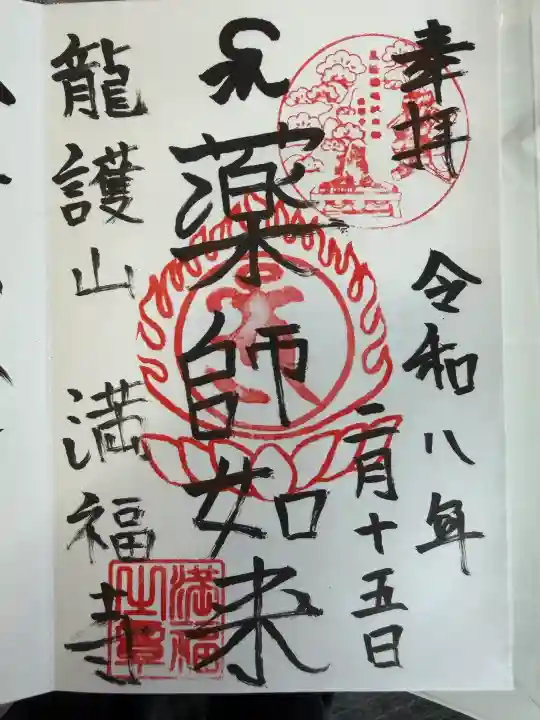 奉拝
令和八年
二月十五日
薬師如来
龍護山 満福寺
満福
之章